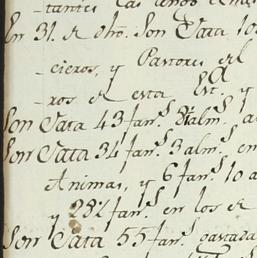 -tantes las
En 31. de dho. Son Data 10
-cieros, y Pastores del
-ros de esta Est. y
Son Data 43 fan.s 8 alm.s a
Son Data 34 fan.s 3 alm.s en
Animas, y 6 fan.s 10 a
y 28½ fan.s en los de
Son Data 55 fan.s gastada